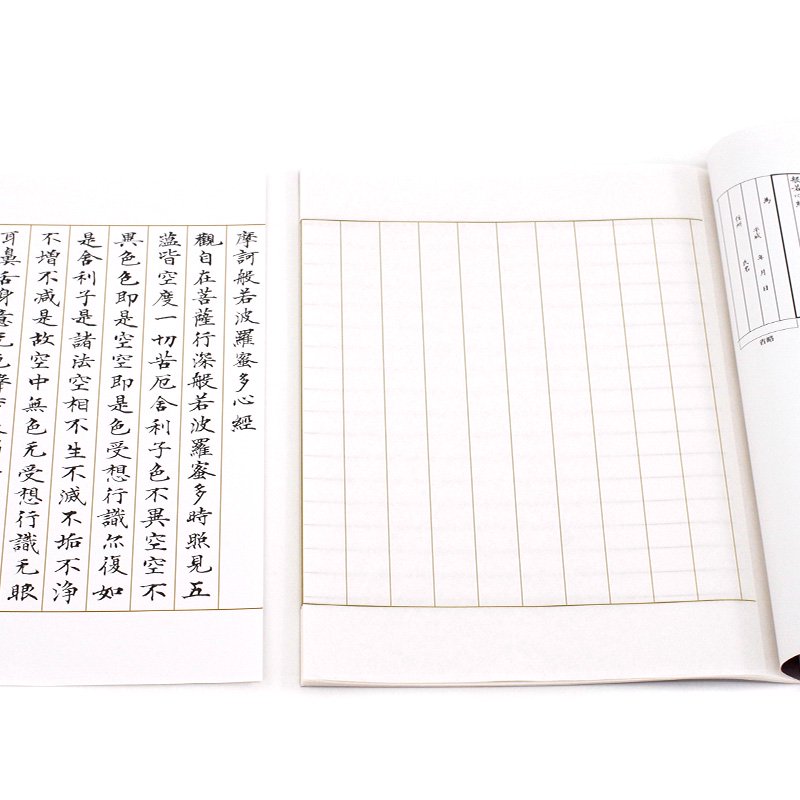 摩訶般若波羅蜜多心經
觀自在菩薩行深般若波羅蜜多時照見五
蕰皆空度一切苦厄舍利子色不異空空不
異色色即是空空即是色受想行識亦復如
是舍利子是諸法空相不生不滅不垢不浄
不增不減是故空中無色无受想行識无眼
耳鼻舌身意无色
般若心經
為
平成 年 月 日
住所
氏名
省略